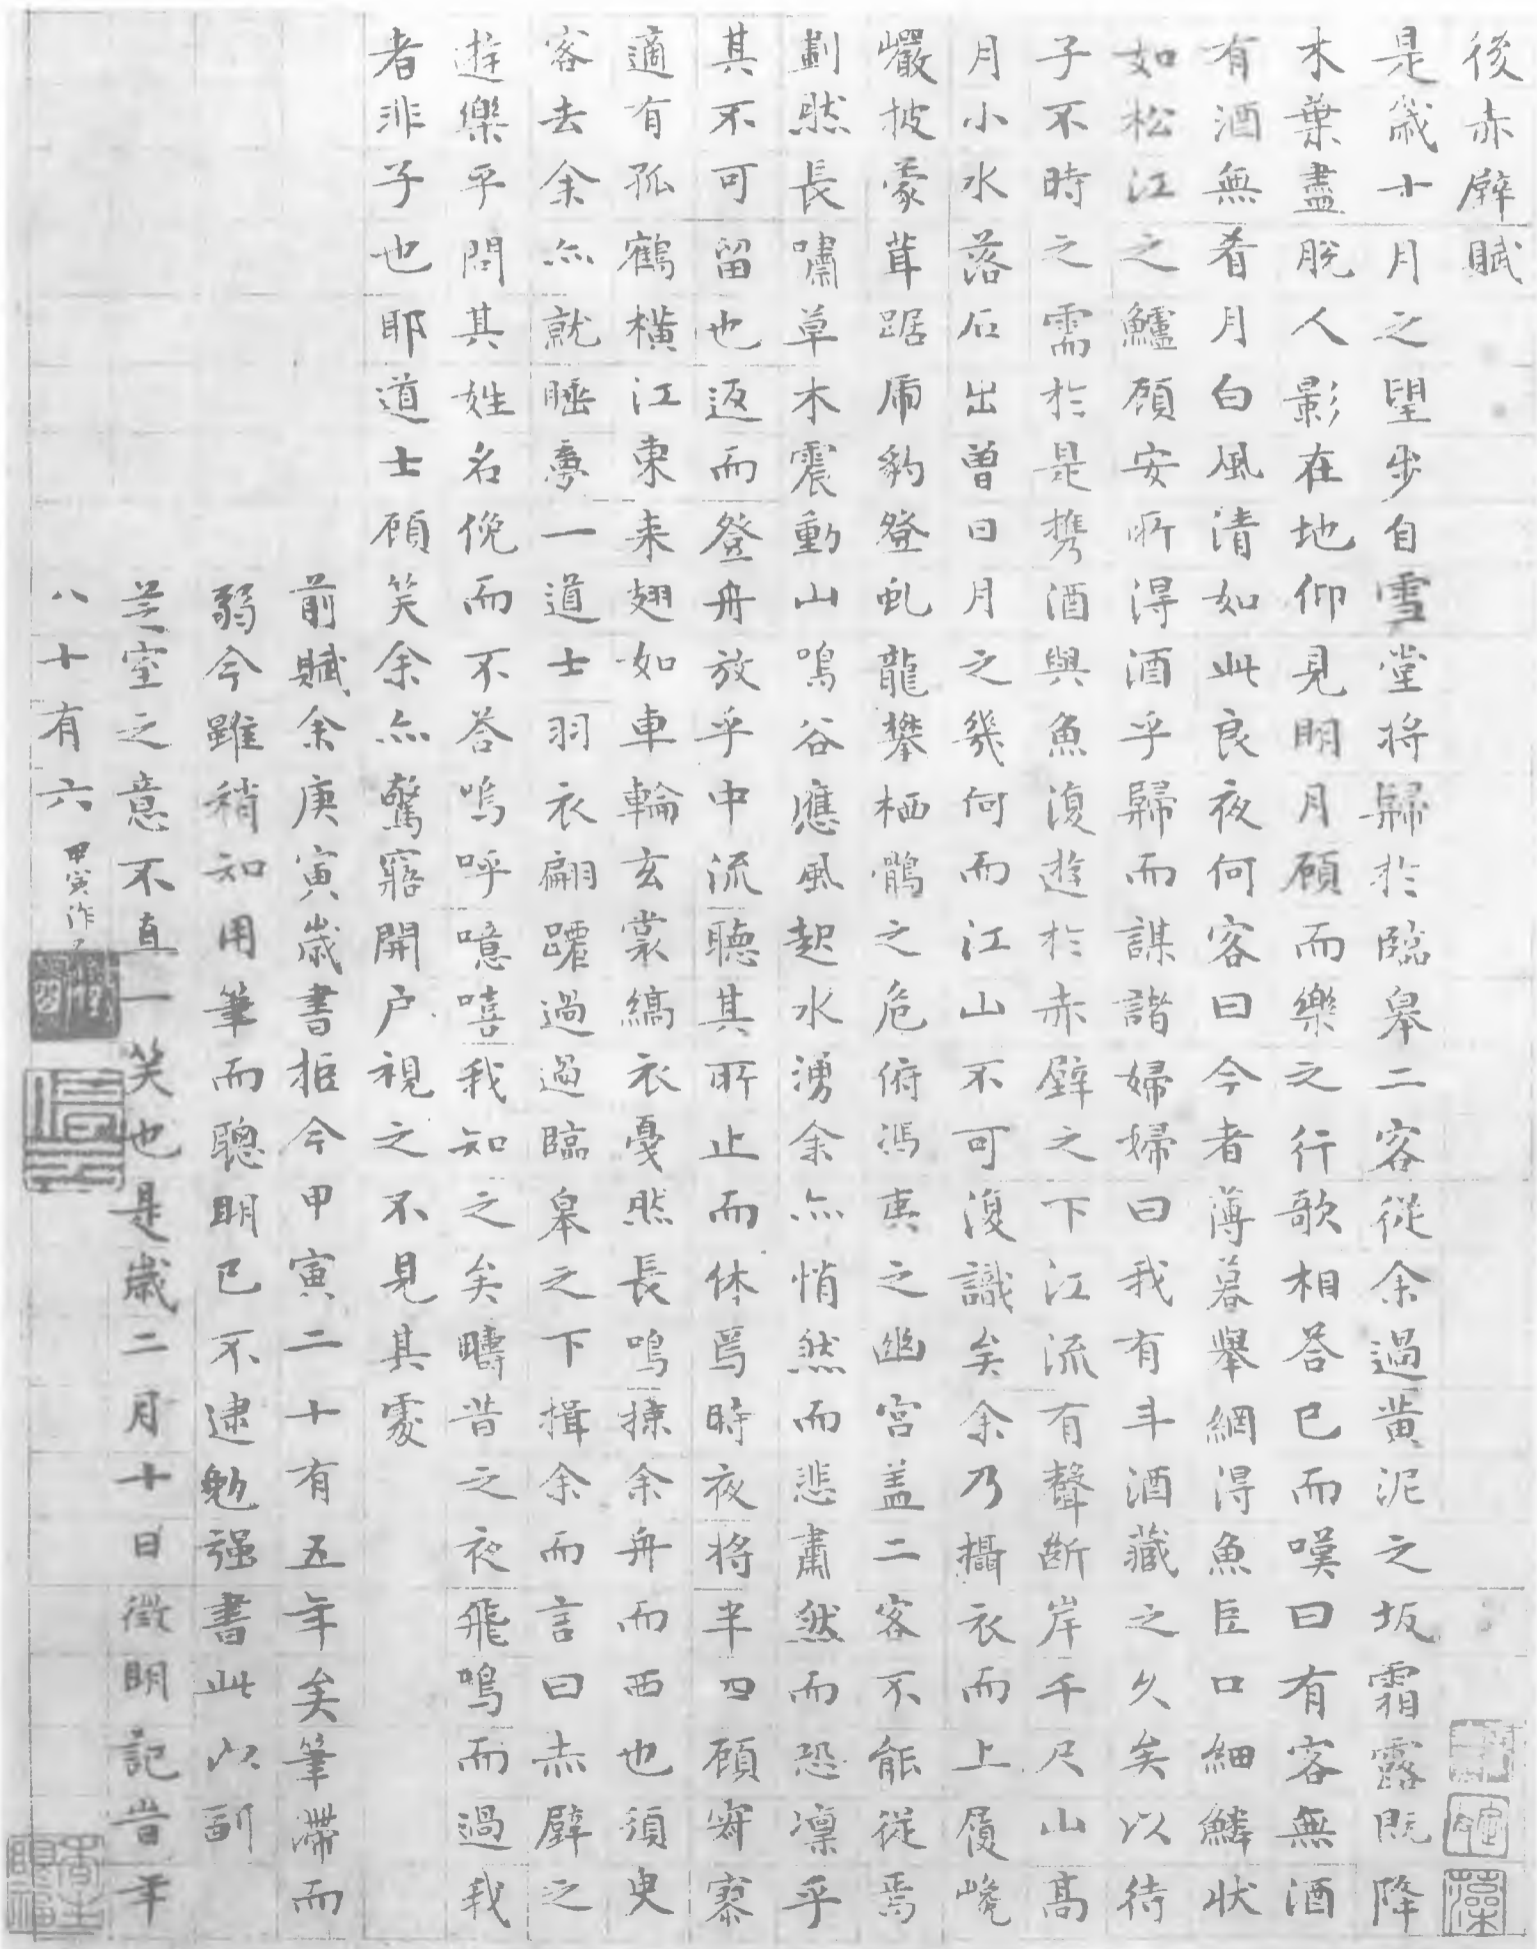 後赤壁賦
是歲十月之望步自雪堂將歸於臨皋二客從余過黃泥之坂霜露既降
木葉盡脫人影在地仰見明月顧而樂之行歌相答已而嘆曰有客無酒
有酒無肴月白風清如此良夜何客曰今者薄暮舉網得魚巨口細鱗狀
如松江之鱸顧安所得酒乎歸而謀諸婦婦曰我有斗酒藏之久矣以待
子不時之需於是攜酒與魚復遊於赤壁之下江流有聲斷岸千尺山高
月小水落石出曾日月之幾何而江山不可復識矣余乃攝衣而上履巉
巖披蒙茸踞虎豹登虬龍攀栖鶻之危俯馮夷之幽宮蓋二客不能從焉
劃然長嘯草木震動山鳴谷應風起水湧余亦悄然而悲肅然而恐凜乎
其不可留也返而登舟放乎中流聽其所止而休焉時夜將半四顧寂寥
適有孤鶴橫江東來翅如車輪玄裳縞衣戛然長鳴掠余舟而西也須臾
客去余亦就睡夢一道士羽衣翩躚過過臨皋之下揖余而言曰赤壁之
遊樂乎問其姓名俛而不答嗚呼噫嘻我知之矣疇昔之夜飛鳴而過我
者非子也耶道士顧笑余亦驚寤開戶視之不見其處
前賦余庚寅歲書拒今甲寅二十有五年矣筆滯而
弱今雖稍知用筆而聰明已不逮勉強書此以副
芝室之意不直一笑也是歲二月十日徵明記昔年
八十有六 甲寅作